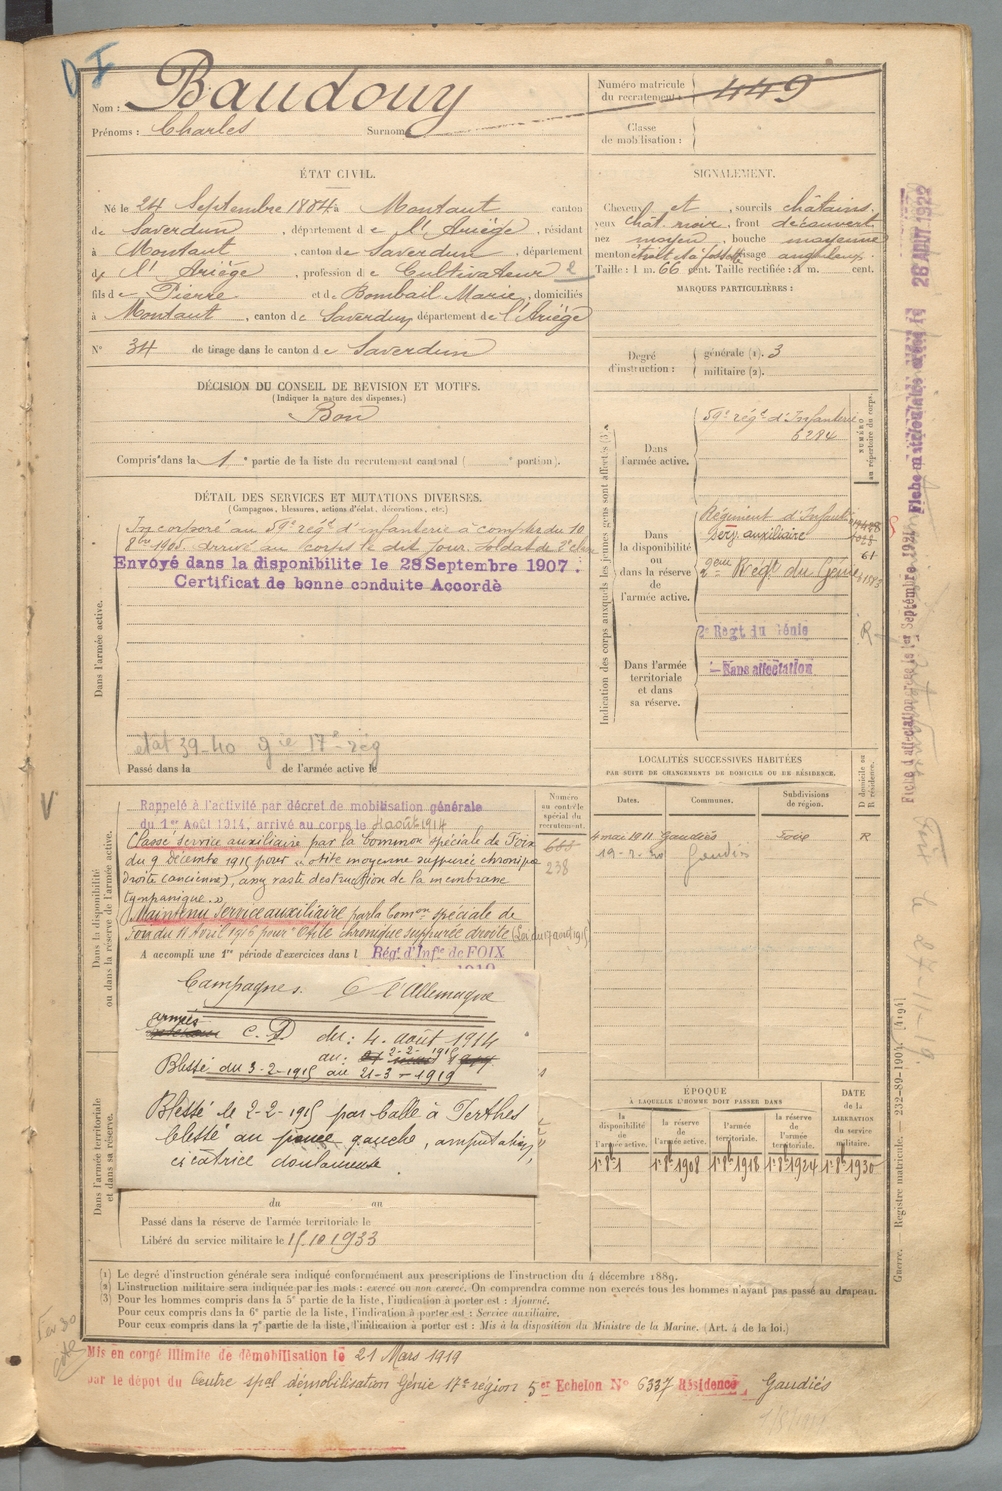 D I
Nom : Baudouy
Prénoms : Charles Surnoms
Numéro matricule
du recrutement : 449
Classe
de mobilisation :
ÉTAT CIVIL.
Né le 24 Septembre 1884 à Montaut canton
de Saverdun, département de l'Ariège, résidant
à Montaut, canton de Saverdun, département
de l'Ariège, profession de Cultivateur 2
fils de Pierre et de Bombail Marie, domiciliés
à Montaut, canton de Saverdun, département de l'Ariège
N° 34 de tirage dans le canton de Saverdun
SIGNALEMENT.
Cheveux et, sourcils châtains
yeux chât. noir, front découvert
nez moyen, bouche moyenne
menton à fossette visage anguleux.
Taille : 1 m. 66 cent. Taille rectifiée : 1 m. cent.
MARQUES PARTICULIÈRES :
Degré
d'instruction :
générale (1). 3
militaire (2).
DÉCISION DU CONSEIL DE REVISION ET MOTIFS.
(Indiquer la nature des dispenses.)
Bon
Compris dans la 1e partie de la liste du recrutement cantonal ( e portion).
DÉTAIL DES SERVICES ET MUTATIONS DIVERSES.
(Campagnes, blessures, actions d'éclat, décorations, etc.)
Dans l'armée active.
Incorporé au 59e régt d'infanterie à compter du 10
8bre 1905. arrivé au corps le dit jour. soldat de 2e classe
Envoyé dans la disponibilite le 28 Septembre 1907.
Certificat de bonne conduite Accordé
état 39-40 gie 17e rég
Passé dans la de l'armée active le
Indication des corps auxquels les jeunes gens sont affectés (3).
NUMÉRO
au répertoire du corps.
Dans
l'armée active.
59e régt d'Infanterie
5284
Dans
la disponibilité
ou
dans la réserve
de
l'armée active.
Régiment d'Infanterie
Serv. auxiliaire
61
2eme Regt du Génie
Dans l'armée
territoriale
et dans
sa réserve.
2e Regt du Génie
R
Sans affectation
LOCALITÉS SUCCESSIVES HABITÉES
PAR SUITE DE CHANGEMENTS DE DOMICILE OU DE RÉSIDENCE.
Dates. Communes. Subdivisions
de région. D domicile ou
R résidence.
4 mai 1911 Gaudiès Foix R
19-2-20 Gaudiès
V
Dans la disponibilité
ou dans la réserve de l'armée active.
Numéro
au contrôle
spécial du
recrutement.
238
Rappelé à l'activité par décret de mobilisation générale
du 1er Août 1914, arrivé au corps le 4 août 1914
Classé service auxiliaire par la Common spéciale de Foix
du 9 décembre 1915 pour « otite moyenne suppurée chronique
droite (ancienne), avec vaste destruction de la membrane
tympanique. »
Maintenu Service auxiliaire par la Comon spéciale de
Foix du 11 Avril 1916 pour "Otite chronique suppurée droite (Loi du 17 août 1915)
A accompli une 1re période d'exercices dans l Régt d'Infie de FOIX
Campagnes. C l'Allemagne
armées C. D du : 4 août 1914
au : 2-2-1915
Blessé du 3-2-1915 au 21-3-1919
Blessé le 2-2-1915 par balle à Perthes
blessé au pouce gauche, amputation,
cicatrice douloureuse.
Dans l'armée territoriale
et dans sa réserve.
du au
Passé dans la réserve de l'armée territoriale le
Libéré du service militaire le 15.10 1933
ÉPOQUE
À LAQUELLE L'HOMME DOIT PASSER DANS
la
disponibilité
de
l'armée active.
la
réserve
de
l'armée active.
l'armée
territoriale.
la réserve
de
l'armée
territoriale.
DATE
de la
LIBÉRATION
du service
militaire.
1er 8bre 1908 1er 8bre 1918 1er 8bre 1924 1er 8bre 1930
(1) Le degré d'instruction générale sera indiqué conformément aux prescriptions de l'instruction du 4 décembre 1889.
(2) L'instruction militaire sera indiquée par les mots : exercé ou non exercé. On comprendra comme non exercés tous les hommes n'ayant pas passé au drapeau.
(3) Pour les hommes compris dans la 5e partie de la liste, l'indication à porter est : Ajourné.
Pour ceux compris dans la 6e partie de la liste, l'indication à porter est : Service auxiliaire.
Pour ceux compris dans la 7e partie de la liste, l'indication à porter est : Mis à la disposition du Ministre de la Marine. (Art. 4 de la loi.)
Mis en congé illimité de démobilisation le 21 Mars 1919
par le dépot du Centre spal démobilisation Génie 17e région 5er Echelon N° 6337 Résidence Gaudiès
Guerre. — Registre matricule. — 232-89-1904. [4194]
Fiche matriculaire 26 AOUT 1922
Fiche d'affectation 1er Septembre 1921
Foix le 27-11-19